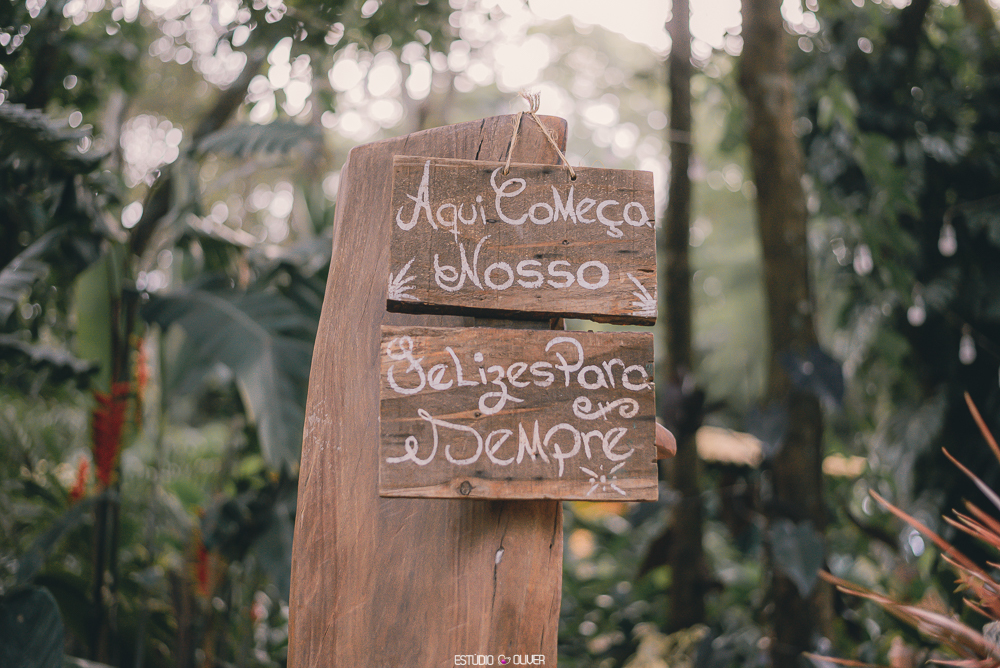 Aqui Começa
Nosso
Felizes Para
Sempre
ESTÚDIO OLIVER